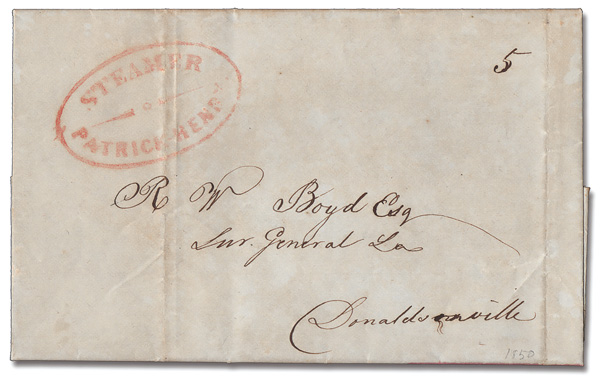 STEAMER
PATRICK HENRY
5
R W Boyd Esq
Sur. General La
Donaldsonville
1850